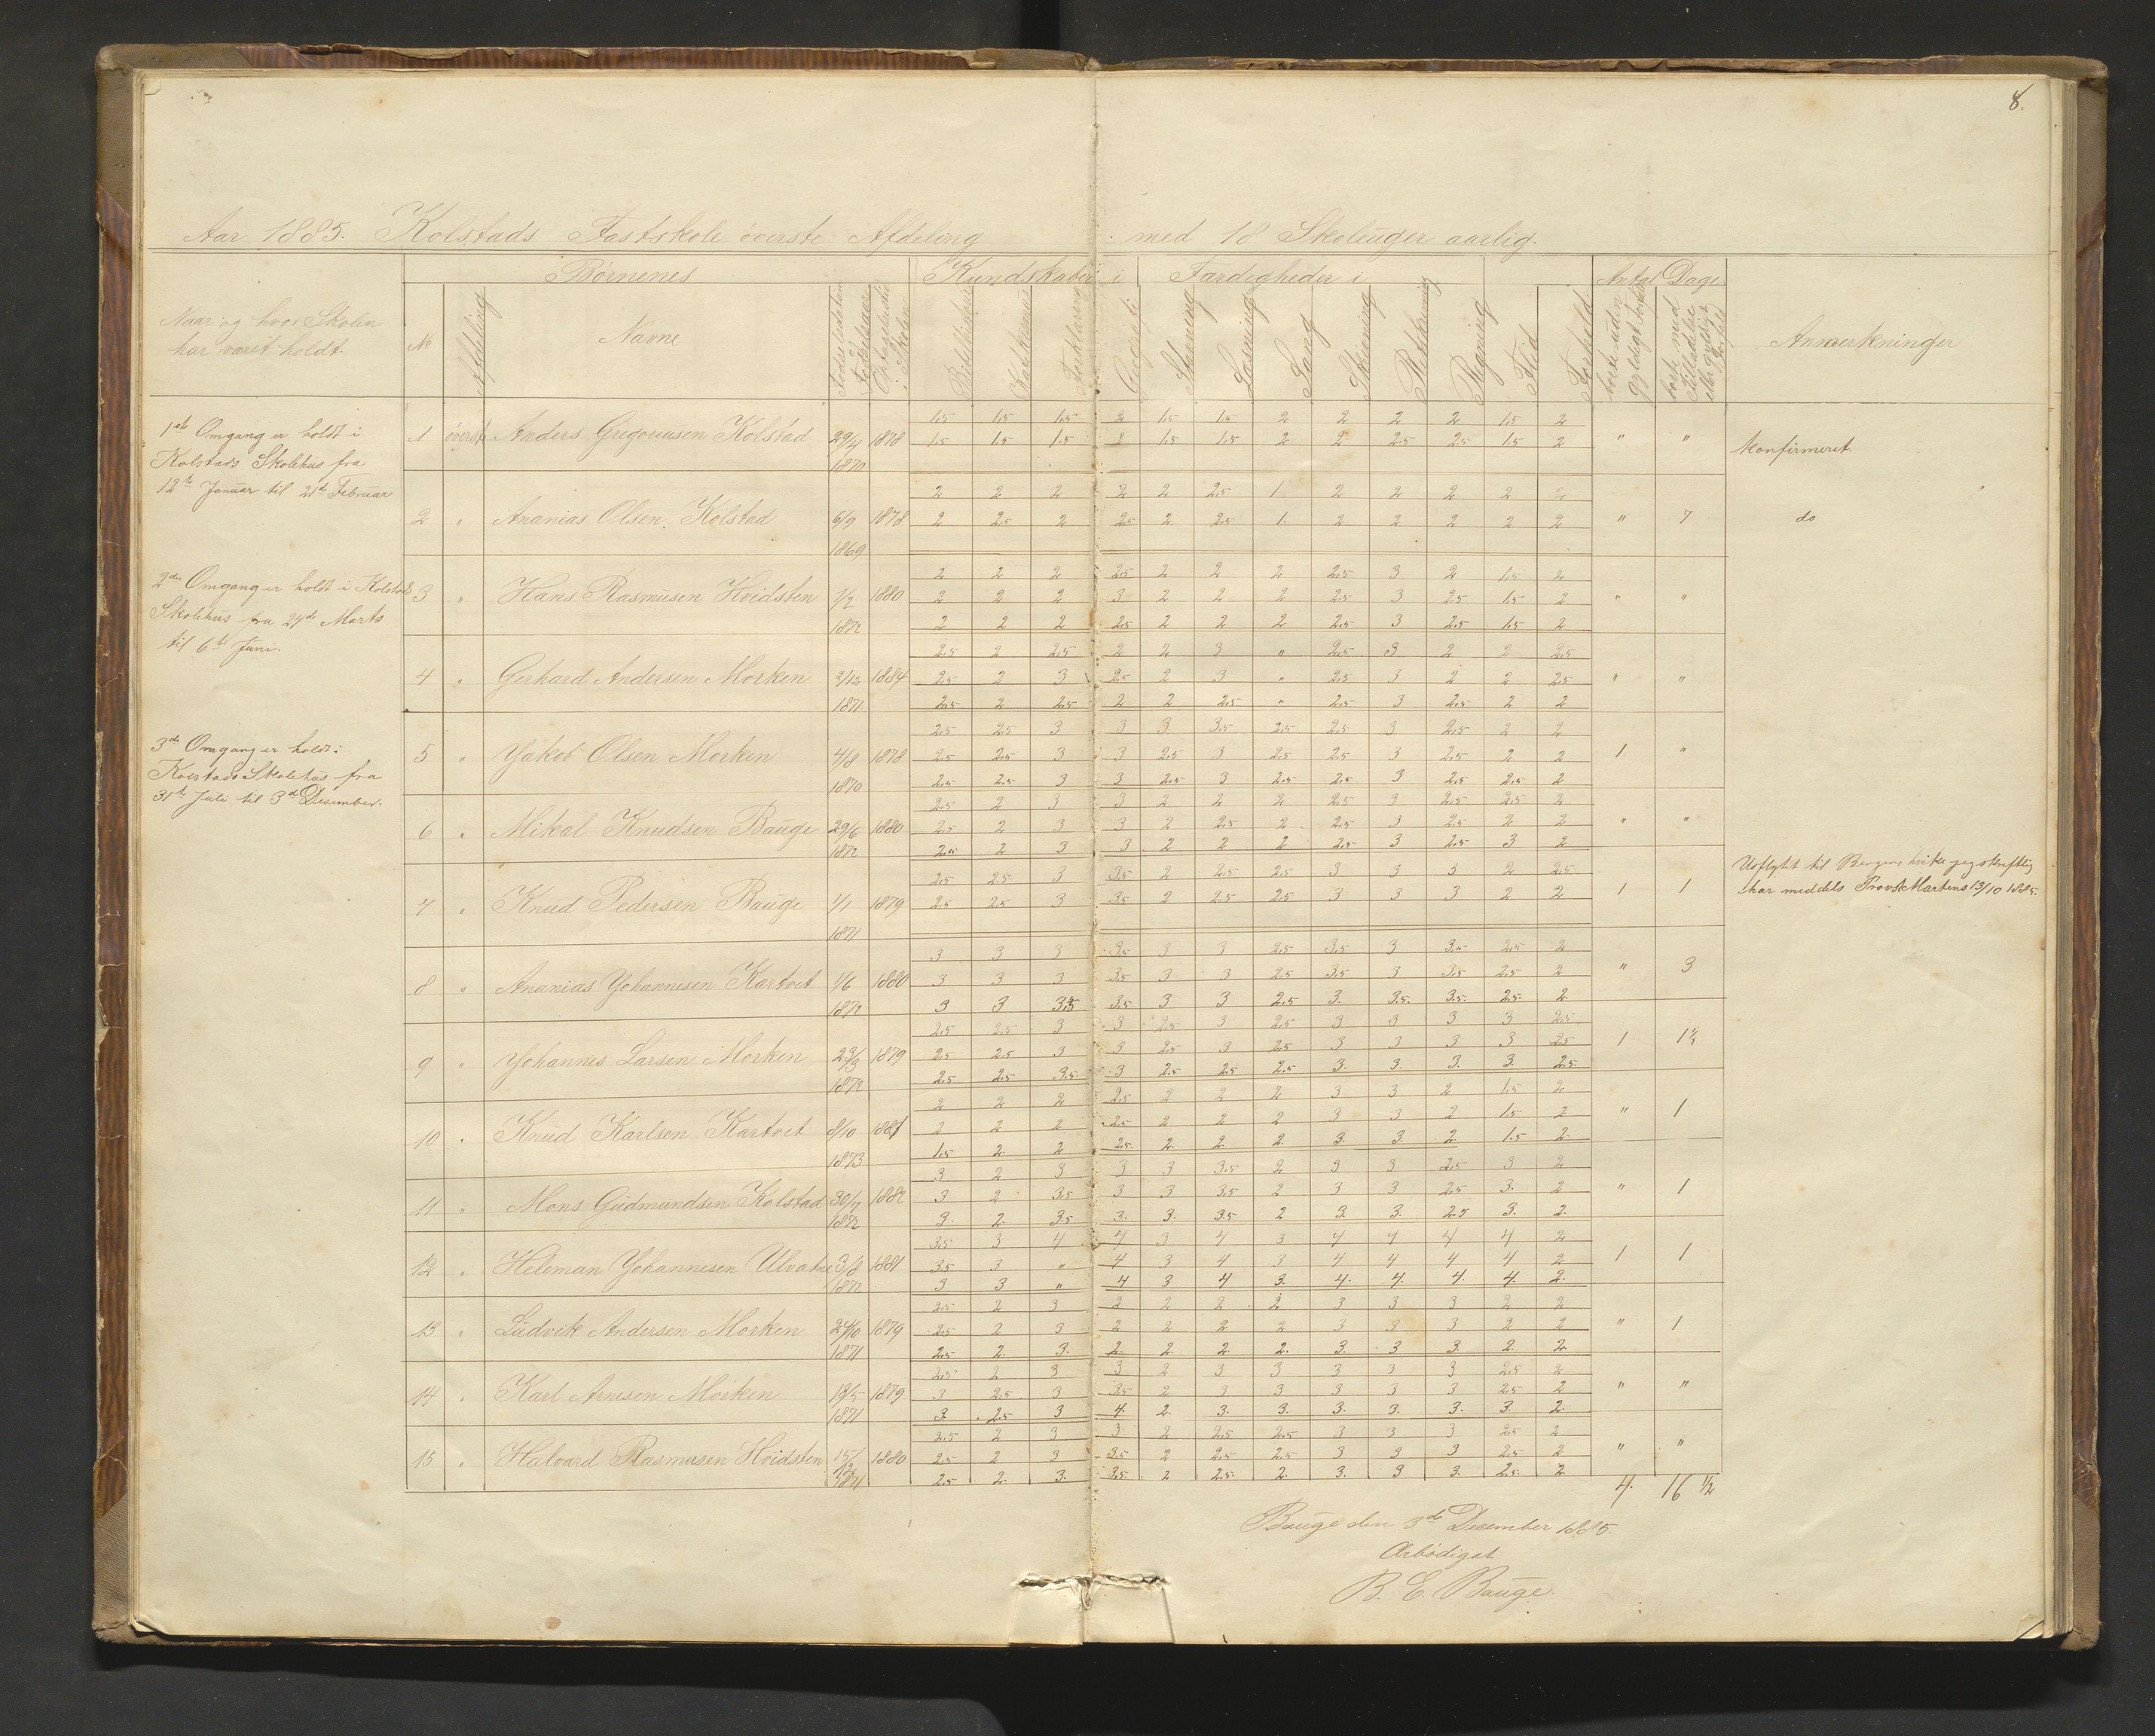 8.
Aar 1885. Kolstads Fastskole överste Afdeling med 18 Skoleuger aarlig.
Naar og hvor Skolen har været holdt.
Börnenes
Kundskaber i
Færdigheder i
Antal Dage
No
Afdeling
Navne
Bibelhistorie
Forklaring
Geografi
Skrivning
Læsning
Sang
Regning
Flid
Forhold.
borte uden gyldigt Forfald
borte med Tilladelse eller gyldigt Forfald
Anmærkninger
1ste Omgang er holdt i
Kolstads Skolehus fra
12te Januar til 21de Februar
2den Omgang er holdt i Kolstads
Skolehus fra 24de Marts
til 6te Juni.
3die Omgang er holdt i
Kolstads Skolehus fra
31te Juli til 3de Desember.
1 överste Anders Gregoriusen Kolstad 29/4 1870 1878
1.5 1.5 1.5 2 1.5 1.5 2 2 2 2 1.5 2
1.5 1.5 1.5 2 1.5 1.5 2 2 2.5 2.5 1.5 2 " " Konfirmeret.
2 " Ananias Olsen Kolstad 6/9 1869 1878
2 2 2 2 2 2.5 1 2 2 2 2 2
2 2.5 2 2.5 2 2.5 1. 2 2 2 2 2 " 7 do
3 " Hans Rasmusen Hvidsten 7/2 1872 1880
2 2 2 2.5 2 2 2 2.5 3 2 1.5 2
2 2 2 3 2 2 2 2.5 3 2.5 1.5 2 " "
2 2 2 2.5 2 2 2 2.5 3 2.5 1.5 2
4 " Gerhard Andersen Morken 3/12 1871 1884
2.5 2 2.5 2 2 3 " 2.5 3 2 2 2.5
2.5 2 3 2.5 2 3 " 2.5 3 2 2 2.5 " "
2.5 2 2.5 2 2 2.5 " 2.5 3 2.5 2 2
5 " Yakob Olsen Morken 4/8 1870 1878
2.5 2.5 3 3 3 3.5 2.5 2.5 3 2.5 2 2
2.5 2.5 3 3 2.5 3 2.5 2.5 3 2.5 2 2 1 "
2.5 2.5 3 3 2.5 3 2.5 2.5 3 2.5 2.5 2
6 " Mikal Knudsen Bauge 29/6 1872 1880
2.5 2 3 3 2 2 2 2.5 3 2.5 2.5 2
2.5 2 3 3 2 2.5 2 2.5 3 2.5 2 2 " "
2.5 2 3 3 2 2 2 2.5 3 2.5 3 2
7 " Knud Pedersen Bauge 1/1 1871 1879
2.5 2.5 3 3.5 2 2.5 2.5 3 3 3 2 2.5
2.5 2.5 3 3.5 2 2.5 2.5 3 3 3 2 2 1 1
Udflyttet til Bergen, hvilke jeg skriftlig
har meddels Provst Martens 13/10 1885.
8 " Ananias Yohannesen Kartvet 1/6 1872 1880
3 3 3 3.5 3 3 2.5 3.5 3 3.5 2.5 2
3 3 3 3.5 3 3 2.5 3.5 3 3.5 2.5 2 " 3
3 3 3.5 3.5 3 3 2.5 3. 3.5. 3.5. 2.5. 2.
9 " Yohannes Larsen Morken 23/3 1872 1879
2.5 2.5 3 3 2.5 3 2.5 3 3 3 3 2.5
2.5 2.5 3 3 2.5 3 2.5 3 3 3 3 2.5 1 1½
2.5 2.5 3.5. 3 2.5 2.5 2.5 3. 3. 3. 3. 2.5.
10 " Knud Karlsen Kartvet 8/10 1873 1881
2 2 2 2.5 2 2 2 3 3 2 1.5 2
2 2 2 2.5 2 2 2 3 3 2 1.5 2 " 1
1.5 2 2 2.5. 2. 2. 2. 3. 3. 2. 1.5 2.
11 " Mons Gudmundsen Kolstad 30/7 1872 1882
3 2 3 3 3 3.5 2 3 3 2.5 3 2
3 2 3.5 3 3 3.5 2 3 3 2.5 3. 2 " 1
3. 2. 3.5 3. 3. 3.5 2 3. 3. 2.5 3. 2.
12 " Heleman Yohannesen Ulvatne 3/8 1872 1881
3.5 3 4 4 3 4 3 4 4 4 4 2
3.5 3 " 4 3 4 3 4 4 4 4 2 1 1
3 3 " 4 3 4 3. 4. 4. 4. 4. 2.
13 " Ludvik Andersen Morken 24/10 1871 1879
2.5 2 3 2 2 2 2 3 3 3 2 2
2.5 2 3 2 2 2 2 3 3 3 2 2 " 1
2.5 2. 3. 2. 2. 2. 2. 3. 3. 3. 2. 2.
14 " Karl Arnesen Morken 18/5 1871 1879
2.5 2 3 3 2 3 3 3 3 3 2.5 2
3 2.5 3 3.5 2 3 3 3 3 3 2.5 2 " "
3. 2.5 3 4. 2. 3. 3. 3. 3. 3. 3. 2.
15 " Halvard Rasmusen Hvidsten 15/12 1871 1880
2.5 2 3 3 2 2.5 2.5 3 3 3 2.5 2
2.5 2 3 3.5 2 2.5 2.5 3 3 3 2.5 2 " "
2.5 2. 3. 3.5. 2 2.5. 2. 3. 3 3. 2.5. 2.
4. 16½
Bauge den 3de December 1885.
Ærbödigst
B. E. Bauge.